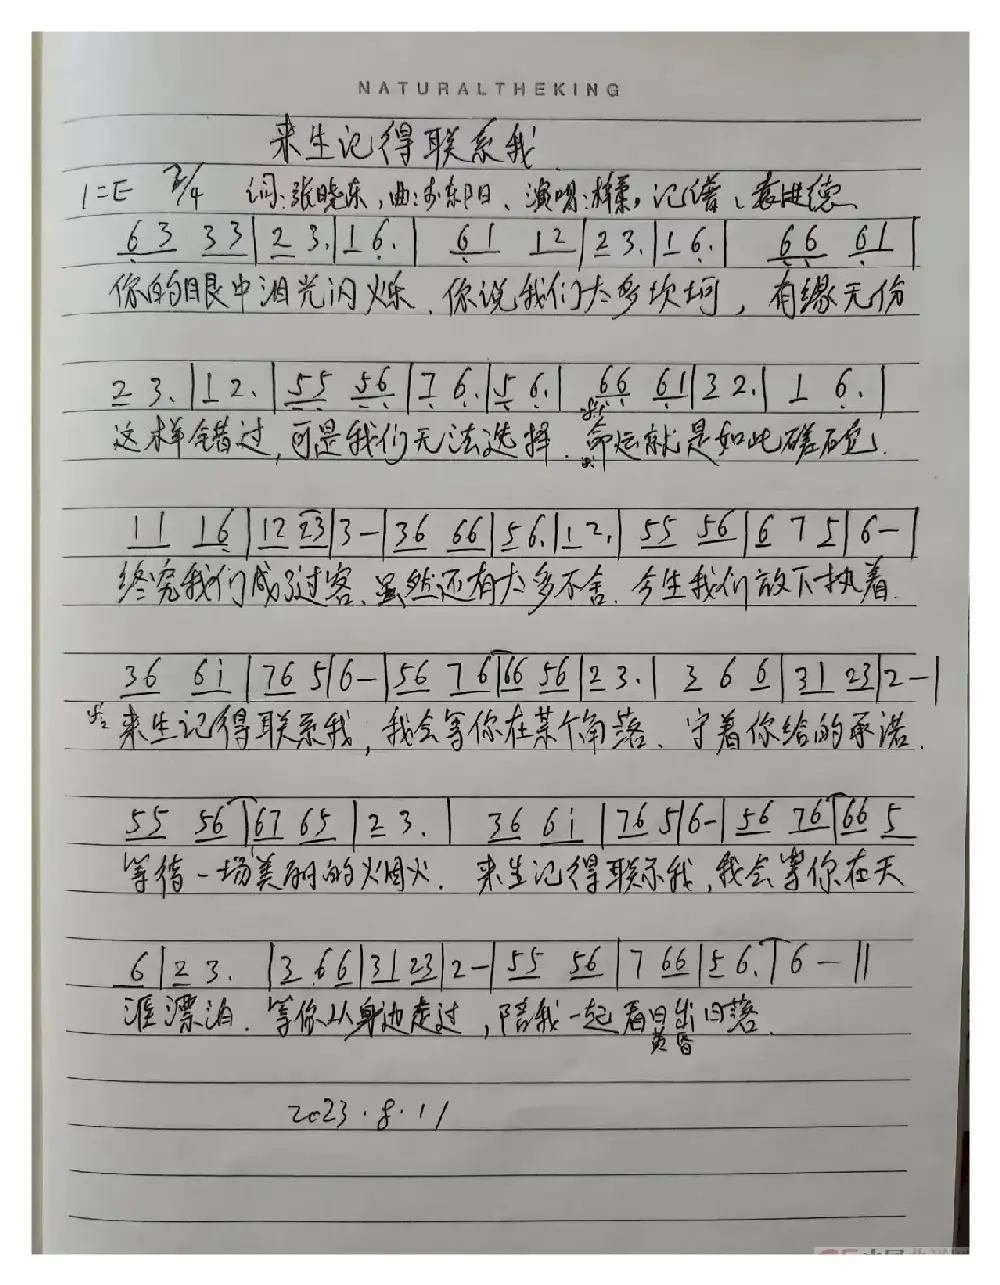 NATURALTHEKING
来生记得联系我
1=E 2/4 词:张晓东,曲:李东阳、演唱:梓柔。记谱、袁进德
6 3 3 3 | 2 3. | 1 6. | 6 1 1 2 | 2 3. | 1 6. | 6 6 6 1 |
你的眼中泪光闪烁、你说我们太多坎坷,有缘无份
2 3. | 1 2. | 5 5 5 6 | 7 6. | 5 6. | 6 6 6 1 | 3 2. | 1 6. |
这样错过,可是我们无法选择、命运就是如此
1 1 1 6 | 1 2 2 3 | 3 - | 3 6 6 6 | 5 6. | 1 2. | 5 5 5 6 | 6 7 5 | 6 - |
终究我们成了过客、虽然还有太多不舍、今生我们放下执着
3 6 6 i | 7 6 5 | 6 - | 5 6 7 6 | 6 6 5 6 | 2 3. | 3 6 6 | 3 1 2 3 | 2 - |
来生记得联系我,我会等你在某个角落、守着你给的承诺.
5 5 5 6 | 6 7 6 5 | 2 3. | 3 6 6 i | 7 6 5 | 6 - | 5 6 7 6 | 6 6 5
等待一场美丽的烟火. 来生记得联系我,我会等你在天
6 | 2 3. | 3 6 6 | 3 1 2 3 | 2 - | 5 5 5 6 | 7 6 6 | 5 6. | 6 - ||
涯漂泊. 等你从身边走过,陪我一起看日出日落.
黄昏
2023.8.11